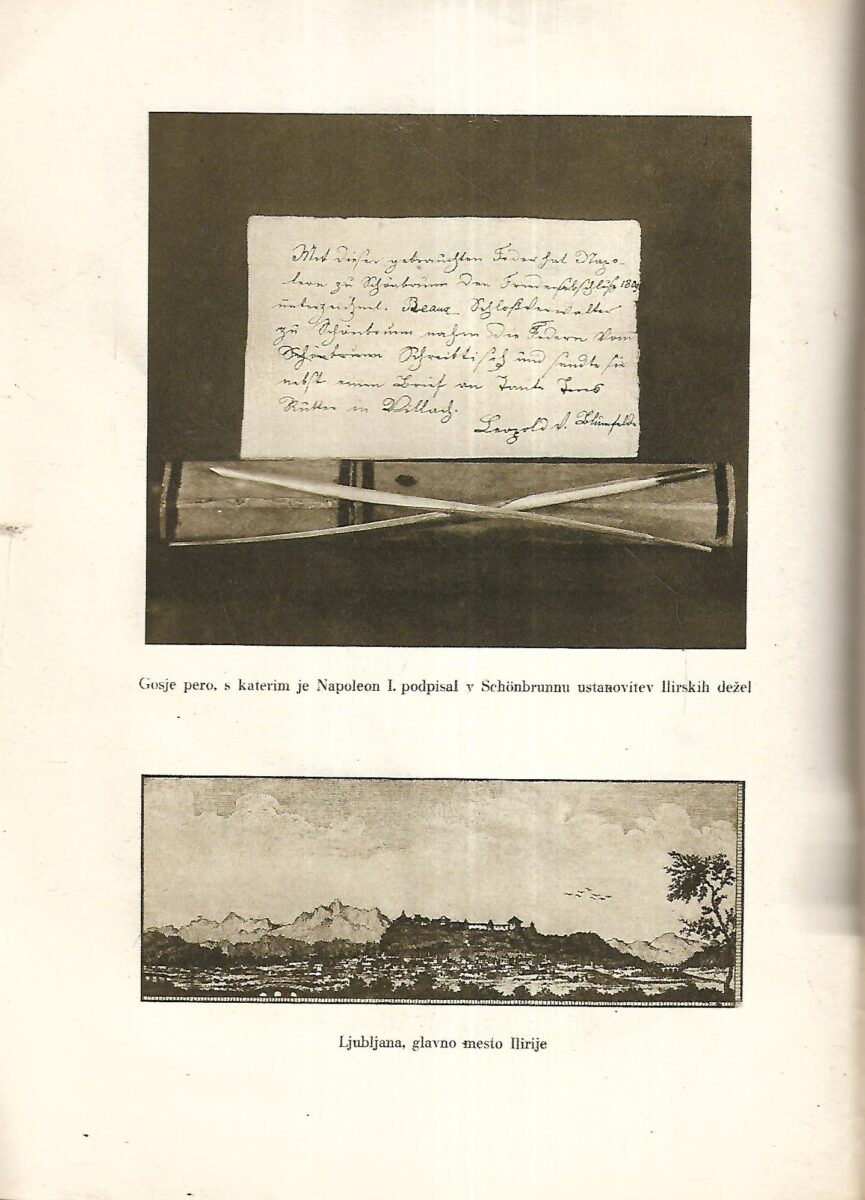 Mit dieser gebrauchten Feder hat Napo-
leon zu Schönbrunn den Friedensabschluß 1809
unterzeichnet. Beaux Schloßverwalter
zu Schönbrunn nahm die Federn vom
Schönbrunn Schreibtisch und sandte sie
nebst einen Brief an Tante Teres
in Villach.
Leopold v. Blumfeld
Gosje pero, s katerim je Napoleon I. podpisal v Schönbrunnu ustanovitev Ilirskih dežel
Ljubljana, glavno mesto Ilirije